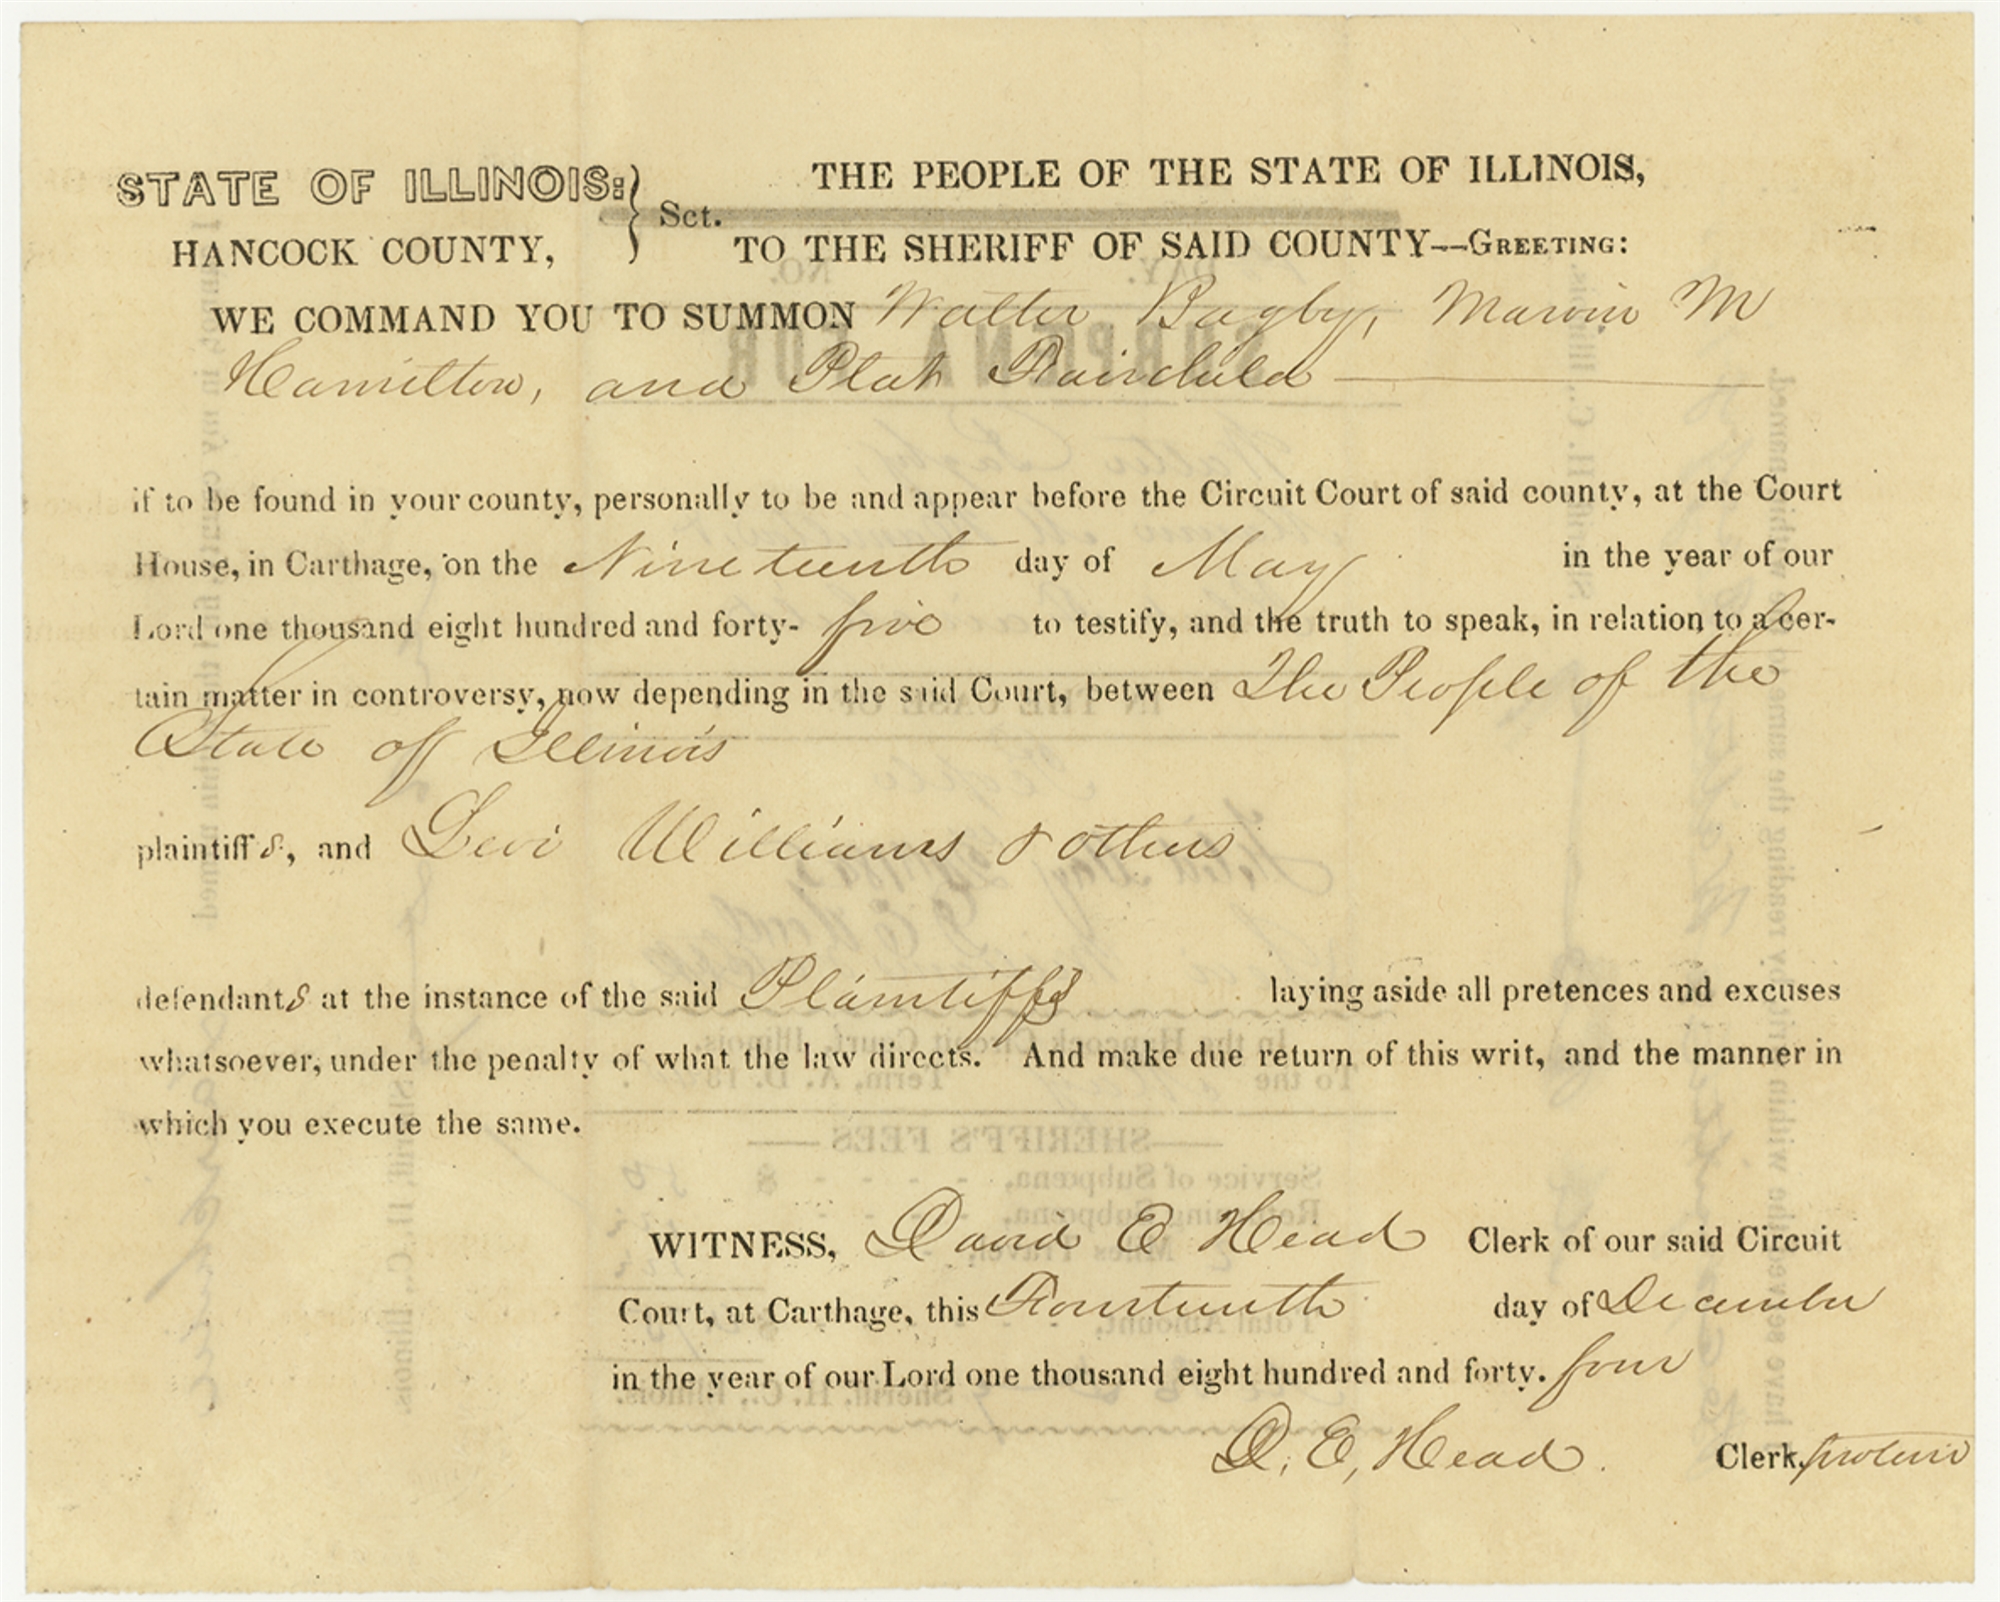 STATE OF ILLINOIS: } Sct. THE PEOPLE OF THE STATE OF ILLINOIS,
HANCOCK COUNTY, TO THE SHERIFF OF SAID COUNTY--GREETING:
WE COMMAND YOU TO SUMMON Walter Bagby, Marvin M
Hamilton, and Plat Fairchild
if to be found in your county, personally to be and appear before the Circuit Court of said county, at the Court
House, in Carthage, on the Nineteenth day of May in the year of our
Lord one thousand eight hundred and forty- five to testify, and the truth to speak, in relation to a cer-
tain matter in controversy, now depending in the said Court, between The People of the
State of Illinois
plaintiffs, and Levi Williams & others
defendants at the instance of the said Plaintiffs laying aside all pretences and excuses
whatsoever, under the penalty of what the law directs. And make due return of this writ, and the manner in
which you execute the same.
WITNESS, David E Head Clerk of our said Circuit
Court, at Carthage, this Fourteenth day of December
in the year of our Lord one thousand eight hundred and forty. four
D. E, Head. Clerk, protem